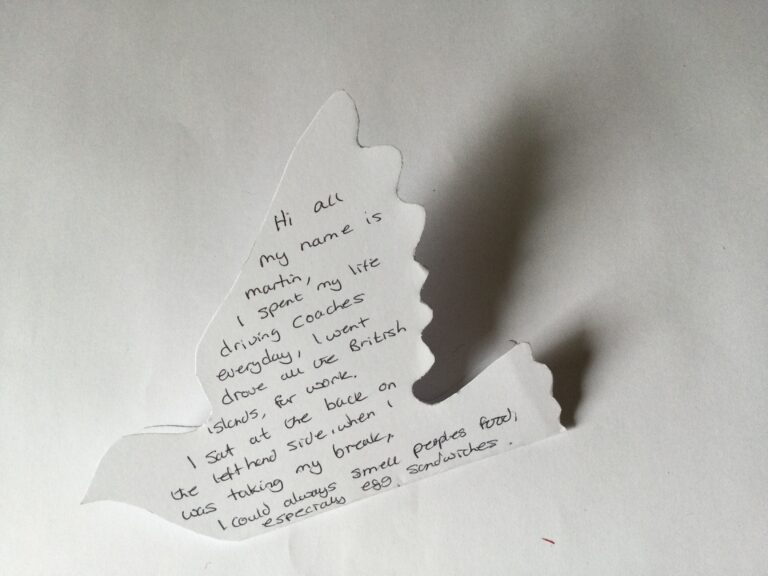 Hi all
my name is
martin,
I spent my life
driving coaches
everyday, I went
drove all the British
islands, for work.
I sat at the back on
the left hand side, when I
was taking my break,
I could always smell peoples food,
especially egg sandwiches.